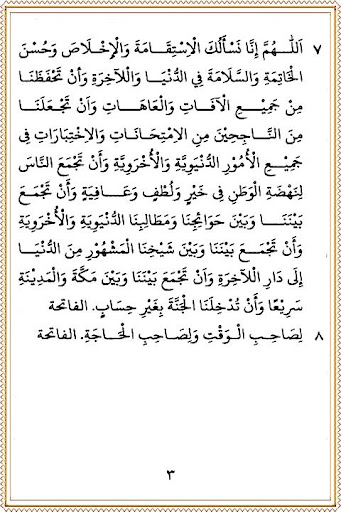 ٧ اَللّٰهُمَّ إِنَّا نَسْأَلُكَ الْاِسْتِقَامَةَ وَالْإِخْلَاصَ وَحُسْنَ
الْخَاتِمَةِ وَالسَّلَامَةَ فِي الدُّنْيَا وَاْلآخِرَةِ وَأَنْ تَحْفَظَنَا
مِنْ جَمِيعِ الْآفَاتِ وَالْعَاهَاتِ وَاَنْ تَجْعَلَنَا
مِنَ النَّاجِحِينَ مِنِ الِامْتِحَانَاتِ وَالِاخْتِبَارَاتِ فِى
جَمِيعِ الْأُمُوْرِ الدُّنْيَوِيَّةِ وَالْأُخْرَوِيَّةِ وَأَنْ تَجْمَعَ النَّاسَ
لِنَهْضَةِ الْوَطَنِ فِى خَيْرٍ وَلُطْفٍ وَعَافِيَةٍ وَأَنْ تَجْمَعَ
بَيْنَنَا وَبَيْنَ حَوَائِجِنَا وَمَطَالِبِنَا الدُّنْيَوِيَةِ وَالْأُخْرَوِيَةِ
وَأَنْ تَجْمَعَ بَيْنَنَا وَبَيْنَ شَيْخِنَا الْمَشْهُوْرِ مِنَ الدُّنْيَا
إِلَى دَارِ اْلآخِرَةِ وَاَنْ تَجْمَعَ بَيْنَنَا وَبَيْنَ مَكَّةَ وَالْمَدِيْنَةِ
سَرِيْعًا وَأَنْ تُدْخِلَنَا الْجَنَّةَ بِغَيْرِ حِسَابٍ. الفاتحة
٨ لِصَاحِبِ الْوَقْتِ وَلِصَاحِبِ الْحَاجَةِ. الفاتحة
٣